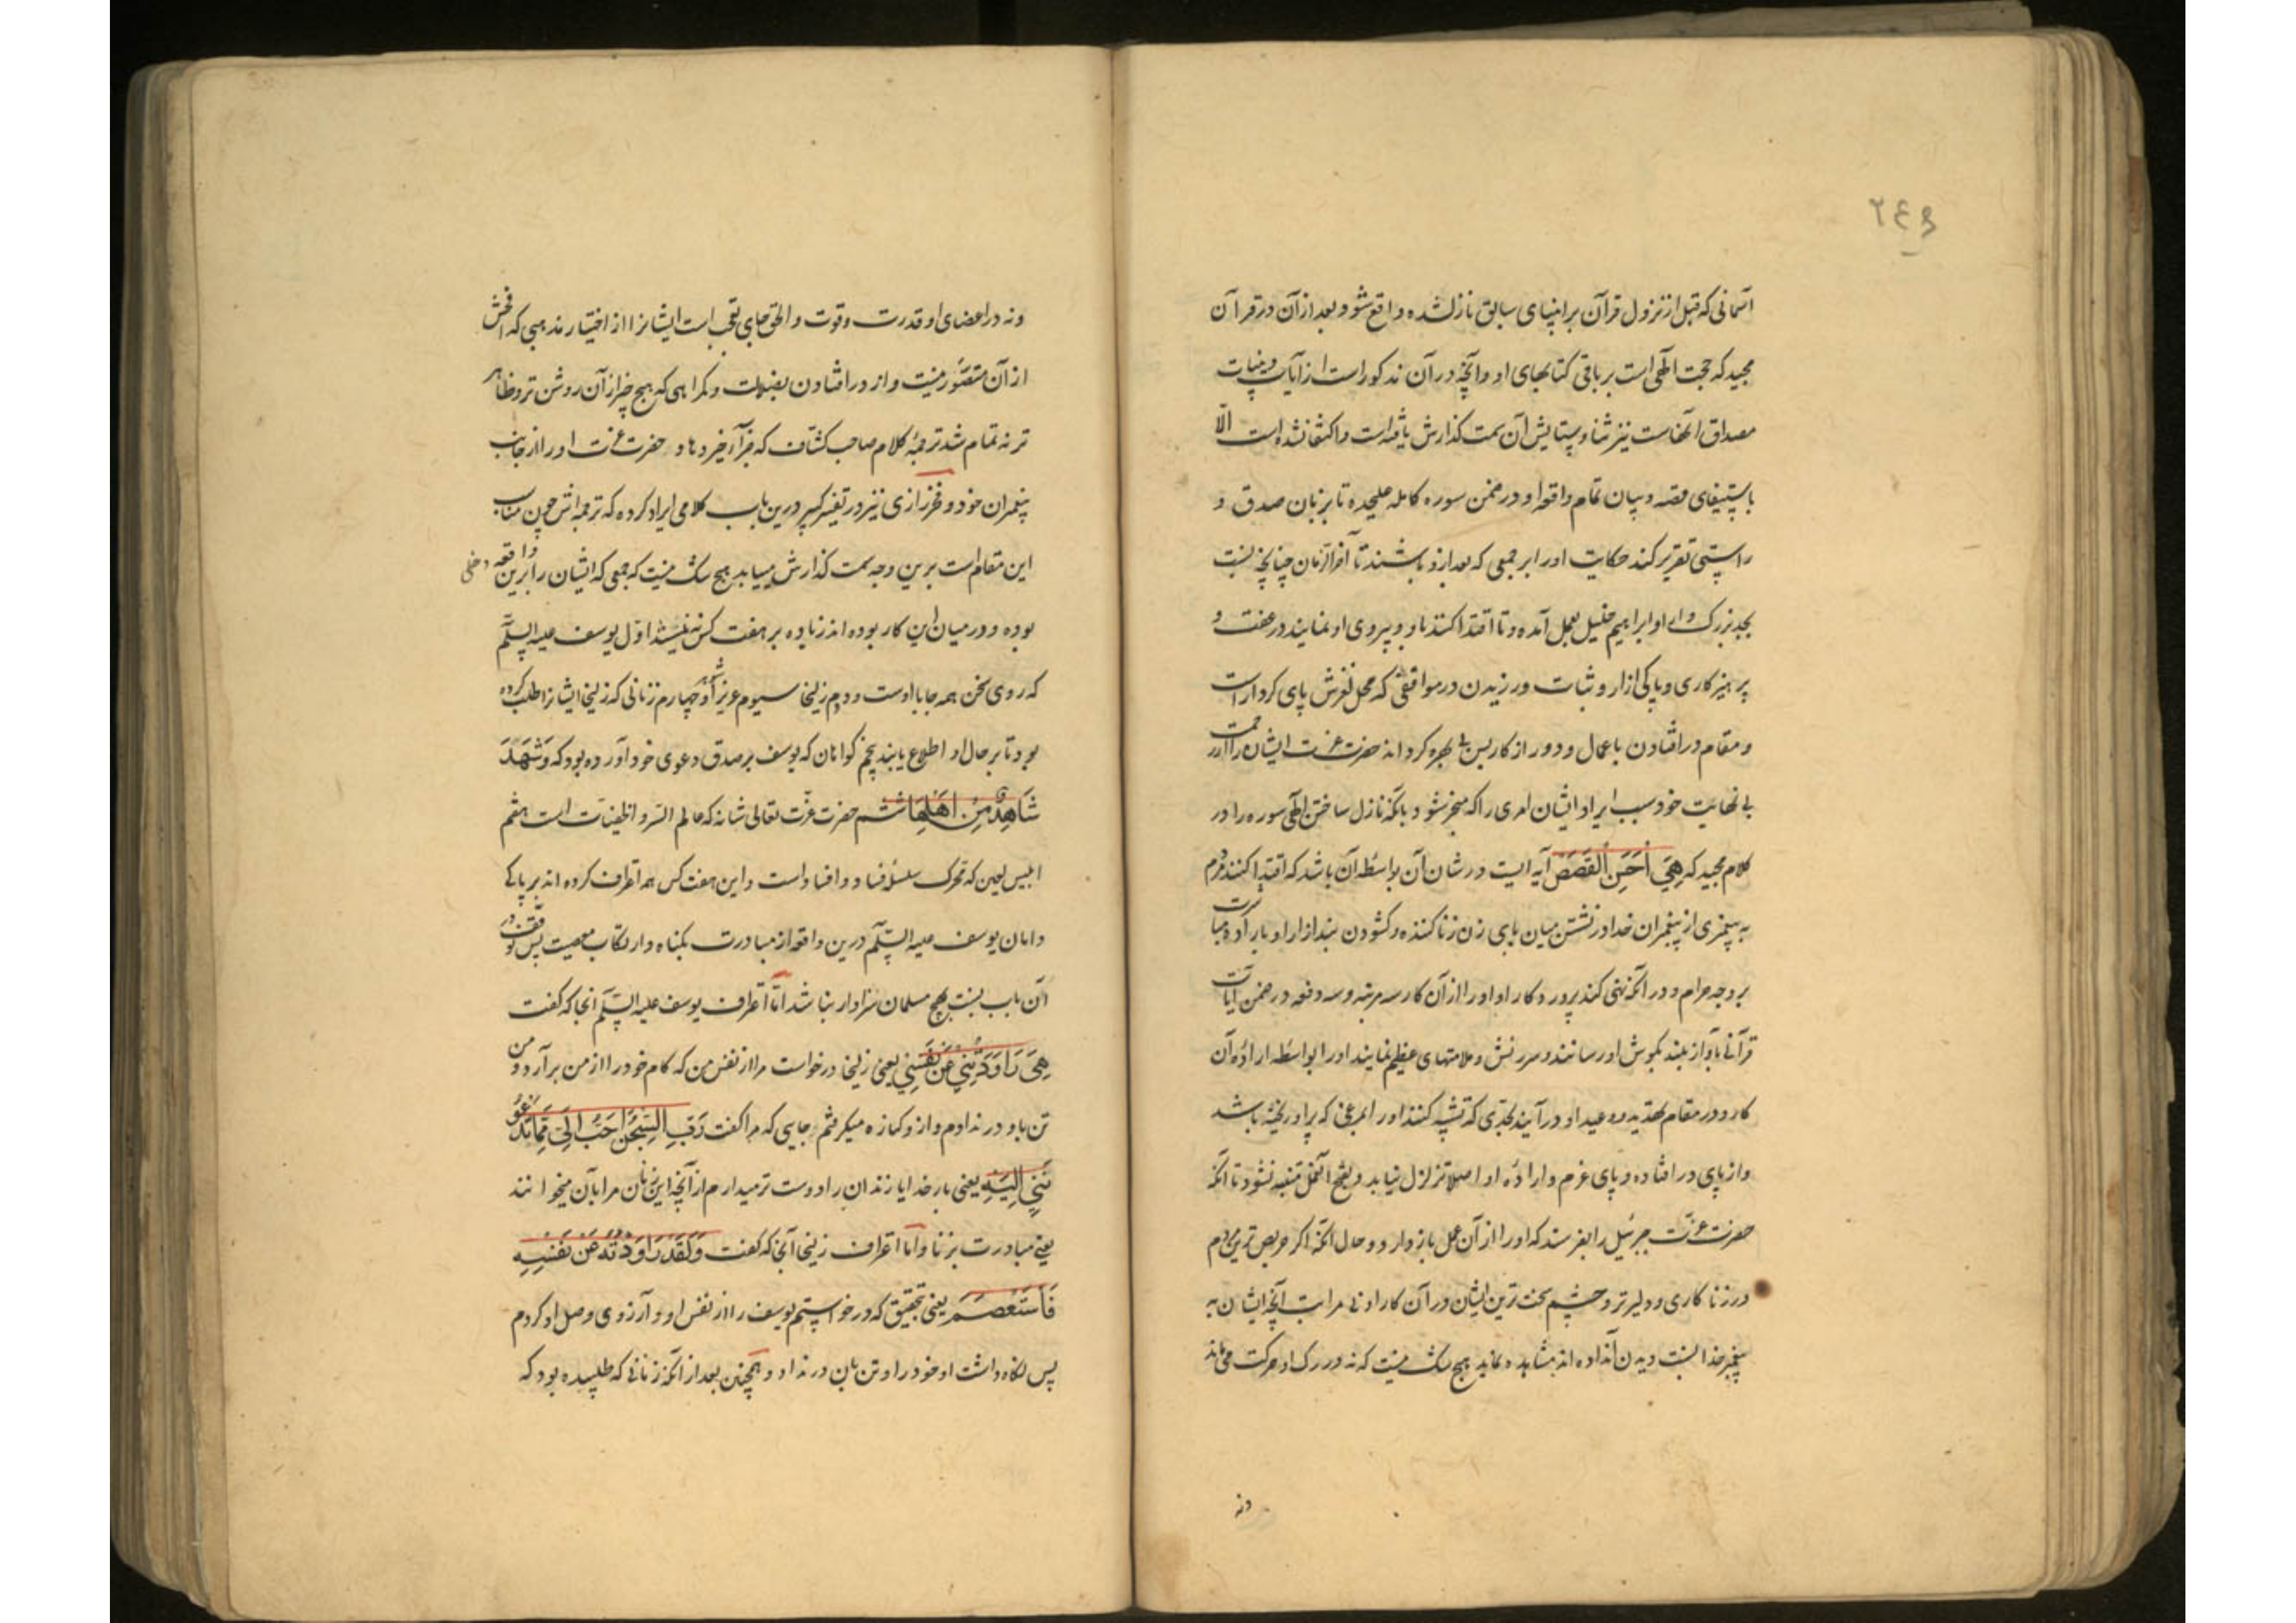 ۲۴۶
آسمانی که قبل از نزول قرآن بر انبیای سابق نازل شده واقع شود و بعد از آن در قرآن
مجید که حجت الهی است بر باقی کتابهای او و آنچه در آن مذکور است از آیات و بینات
مصداق آنهاست نیز ثنا و ستایش آن سمت گذارش یافته است و اکتفا نشده است الّا
باستیفای قصه و بیان تمام واقعه او در ضمن سوره کامله علیحده تا بر زبان صدق و
راستی تقریر کند حکایت او را بر جمعی که بعد ازو باشند تا آخر الزمان چنانچه نسبت
بجد بزرگ او ابراهیم خلیل بعمل آمده و تا اقتدا کنند باو و پیروی او نمایند در عفت و
پرهیزکاری و پاکی ازار و ثبات ورزیدن در مواقفی که محل لغزش پای کردارست
و مقام در افتادن باعمال و دور از کار پس بی بهره کرداند حضرت عزت ایشان را از رحمت
بی نهایت خود سبب ایراد ایشان امری را که منجر شود بآنکه نازل ساختن الهی سوره را در
کلام مجید که هِیَ اَحْسَنَ الْقَصَصْ آیه ایست در شان آن بواسطه آن باشد که اقتدا کنند مردم
به پیغمبری از پیغمبران خدا در نشستن میان پای زن زنا کننده و کشودن بند ازار او باراده مباشرت
بر وجه حرام و در آنکه نهی کند پروردکار او او را از آن کار سه مرتبه و سه دفعه در ضمن آیات
قرآنی بآواز بلند بکوش او رسانند و سرزنش و ملامتهای عظیم نمایند او را بواسطه اراده آن
کار و در مقام تهدید و وعید او در آیند بحدی که تشبیه کنند او را بمرغی که پر او ریخته باشد
و از پای در افتاده و پای عزم و اراده او اصلا تزلزل نیابد و بقبح آن فعل متنبه نشود تا آنکه
حضرت عزت جبرئیل را بفرستد که او را از آن عمل باز دارد و حال آنکه اگر حریص ترین مردم
در زنا کاری و دلیرتر و چشم سخت ترین ایشان در آن کار ادنی مراتب آنچه ایشان به
پیغمبر خدا نسبت دیدن آن داده اند مشاهده نماید هیچ شک نیست که نه در رک او حرکت می ماند
ونه
ونه در اعضای او قدرت و قوت و الحق جای تعجب است ایشانرا از اختیار مذهبی که افحش
از آن متصوّر نیست و از در افتادن بضلالت و گمراهی که هیچ چیز از آن روشن تر و ظاهر
تر نه تمام شد ترجمه کلام صاحب کشاف که جزا خیر دهاد حضرت عزت او را از جانب
پیغمبران خود و فخر رازی نیز در تفسیر کبیر درین باب کلامی ایراد کرده که ترجمه اش چون مناسب
این مقام است برین وجه سمت گذارش مییابد هیچ شک نیست که جمعی که ایشان را برین واقعه دخلی
بوده و در میان این کار بوده اند زیاده بر هفت کس نه نیستند اوّل یوسف علیه السّلم
که روی سخن همه جا با اوست و دوم زلیخا سیوم عزیز شوهر او چهارم زنانی که زلیخا ایشانرا طلب کرده
بود تا بر حال او اطلاع یابند پنجم کواهان که یوسف بر صدق دعوی خود آورده بود که وَشَهِدَ
شَاهِدٌ مِنْ اَهْلِهَا ششم حضرت عزّت تعالی شانه که عالم السّر و الخفیّات است هفتم
ابلیس لعین که محرک سلسله فساد و افساد است و این هفت کس همه اعتراف کرده اند بر پاکی
دامان یوسف علیه السّلم درین واقعه از مبادرت بکناه و ارتکاب معصیت پس توقف در
آن باب نسبت بهیچ مسلمان سزاوار نباشد امّا اعتراف یوسف علیه السّلم آنجا که گفت
هِیَ رَاوَدَتْنِی عَنْ نَفْسِی یعنی زلیخا درخواست مرا از نفس من که کام خود را از من برآرد و من
تن باو در ندادم و از و کناره میکرفتم جایی که مرا گفت رَبِّ السِّجْنُ اَحَبُّ اِلَیَّ مِمَّا یَدْعُو
نَنِی اِلَیْهِ یعنی بار خدایا زندان را دوست تر میدارم از آنچه این زنان مرا بآن میخوانند
یعنی مبادرت بزنا و اما اعتراف زلیخا آنجا که گفت وَلَقَدْ رَاوَدْتُهُ عَنْ نَفْسِهِ
فَاسْتَعْصَمَ یعنی بتحقیق که درخواستم یوسف را از نفس او و آرزوی وصل او کردم
پس نگاه داشت او خود را و تن بآن در نداد و همچنین بعد از آنکه زنانی که طلبیده بود که